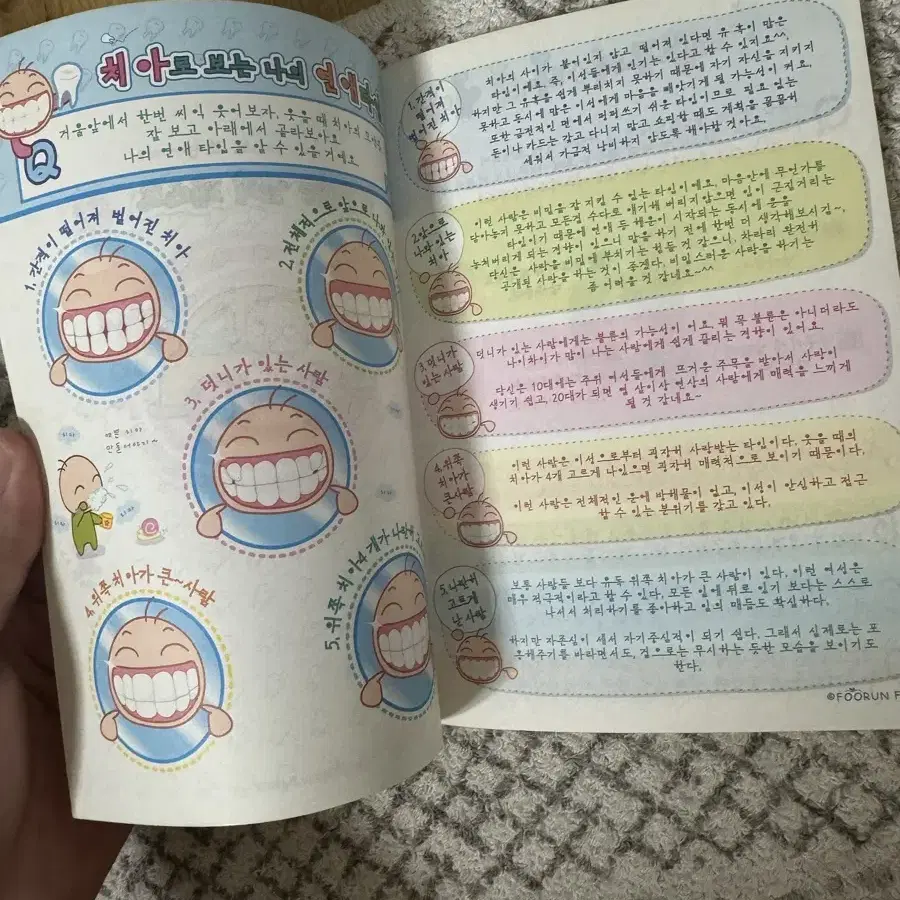 치아로 보는 나의 연애
거울앞에서 한번 씨익 웃어보자. 웃을 때 치아의
잘 보고 아래에서 골라보아요
나의 연애 타입을 알 수 있을거에요.
Q
1. 간격이 떨어져 벌어진 치아
2. 전체적으로 앞으로
3. 덧니가 있는 사람
치아
만들어야지~
4. 위쪽 치아가 큰~사람
5. 위쪽 치아 네 개가 나란히
1. 간격이
떨어져
벌어진 치아
치아의 사이가 붙어있지 않고 떨어져 있다면 유혹이 많은
타입이에요. 즉, 이성들에게 인기는 있다고 할 수 있지요^^.
하지만 그 유혹을 쉽게 뿌리치지 못하기 때문에 자기 자신을 지키지
못하고 동시에 많은 이성에게 마음을 빼앗기게 될 가능성이 커요.
또한 금전적인 면에서 펑펑쓰기 쉬운 타입이므로 필요 없는
돈이나 카드는 갖고 다니지 말고 쇼핑할 때도 계획을 꼼꼼히
세워서 가급적 낭비하지 않도록 해야할 것 아요.
2. 앞으로
나와 있는
치아
이런 사람은 비밀을 잘 지킬 수 없는 타입이에요. 마음안에 무언가를
담아놓지 못하고 모든걸 수다로 얘기해 버리지 않으면 입이 근질거리는
타입이기 때문에 연애 등 해운이 시작되는 동시에 운을
놓쳐버리게 되는 경향이 있으니 말을 하기 전에 한번 더 생각해보시길~.
당신은 사랑을 비밀에 부치기는 힘들 것 같으니, 차라리 완전히
공개된 사랑을 하는 것이 좋겠다. 비밀스러운 사랑을 하기는
좀 어려울 것 같네요~^^
3. 덧니가
있는 사람
덧니가 있는 사람에게는 불륜의 가능성이 어요. 뭐 꼭 불륜은 아니더라도
나이차이가 많이 나는 사람에게 쉽게 끌리는 경향이 있어요.
당신은 10대에는 주위 여성들에게 뜨거운 주목을 받아서 사랑이
생기기 쉽고, 20대가 되면 열 살이상 연상의 사람에게 매력을 느끼게
될 것 같네요~
4. 위쪽
치아가
큰사람
이런 사람은 이성으로부터 굉장히 사랑받는 타입이다. 웃을 때의
치아가 4개 고르게 나있으면 굉장히 매력적으로 보이기 때문이다.
이런 사람은 전체적인 운에 방해물이 없고, 이성이 안심하고 접근
할 수 있는 분위기를 갖고 있다.
5. 나란히
고르게
난 사람
보통 사람들 보다 유독 위쪽 치아가 큰 사람이 있다. 이런 여성은
매우 적극적이라고 할 수 있다. 모든 일에 뒤로 있기 보다는 스스로
나서서 처리하기를 좋아하고 일의 매듭도 확실하다.
하지만 자존심이 세서 자기중심적이 되기 쉽다. 그래서 실제로는 포
옹해주기를 바라면서도, 겉으로는 무시하는 듯한 모습을 보이기도
한다.
©FOORUN F